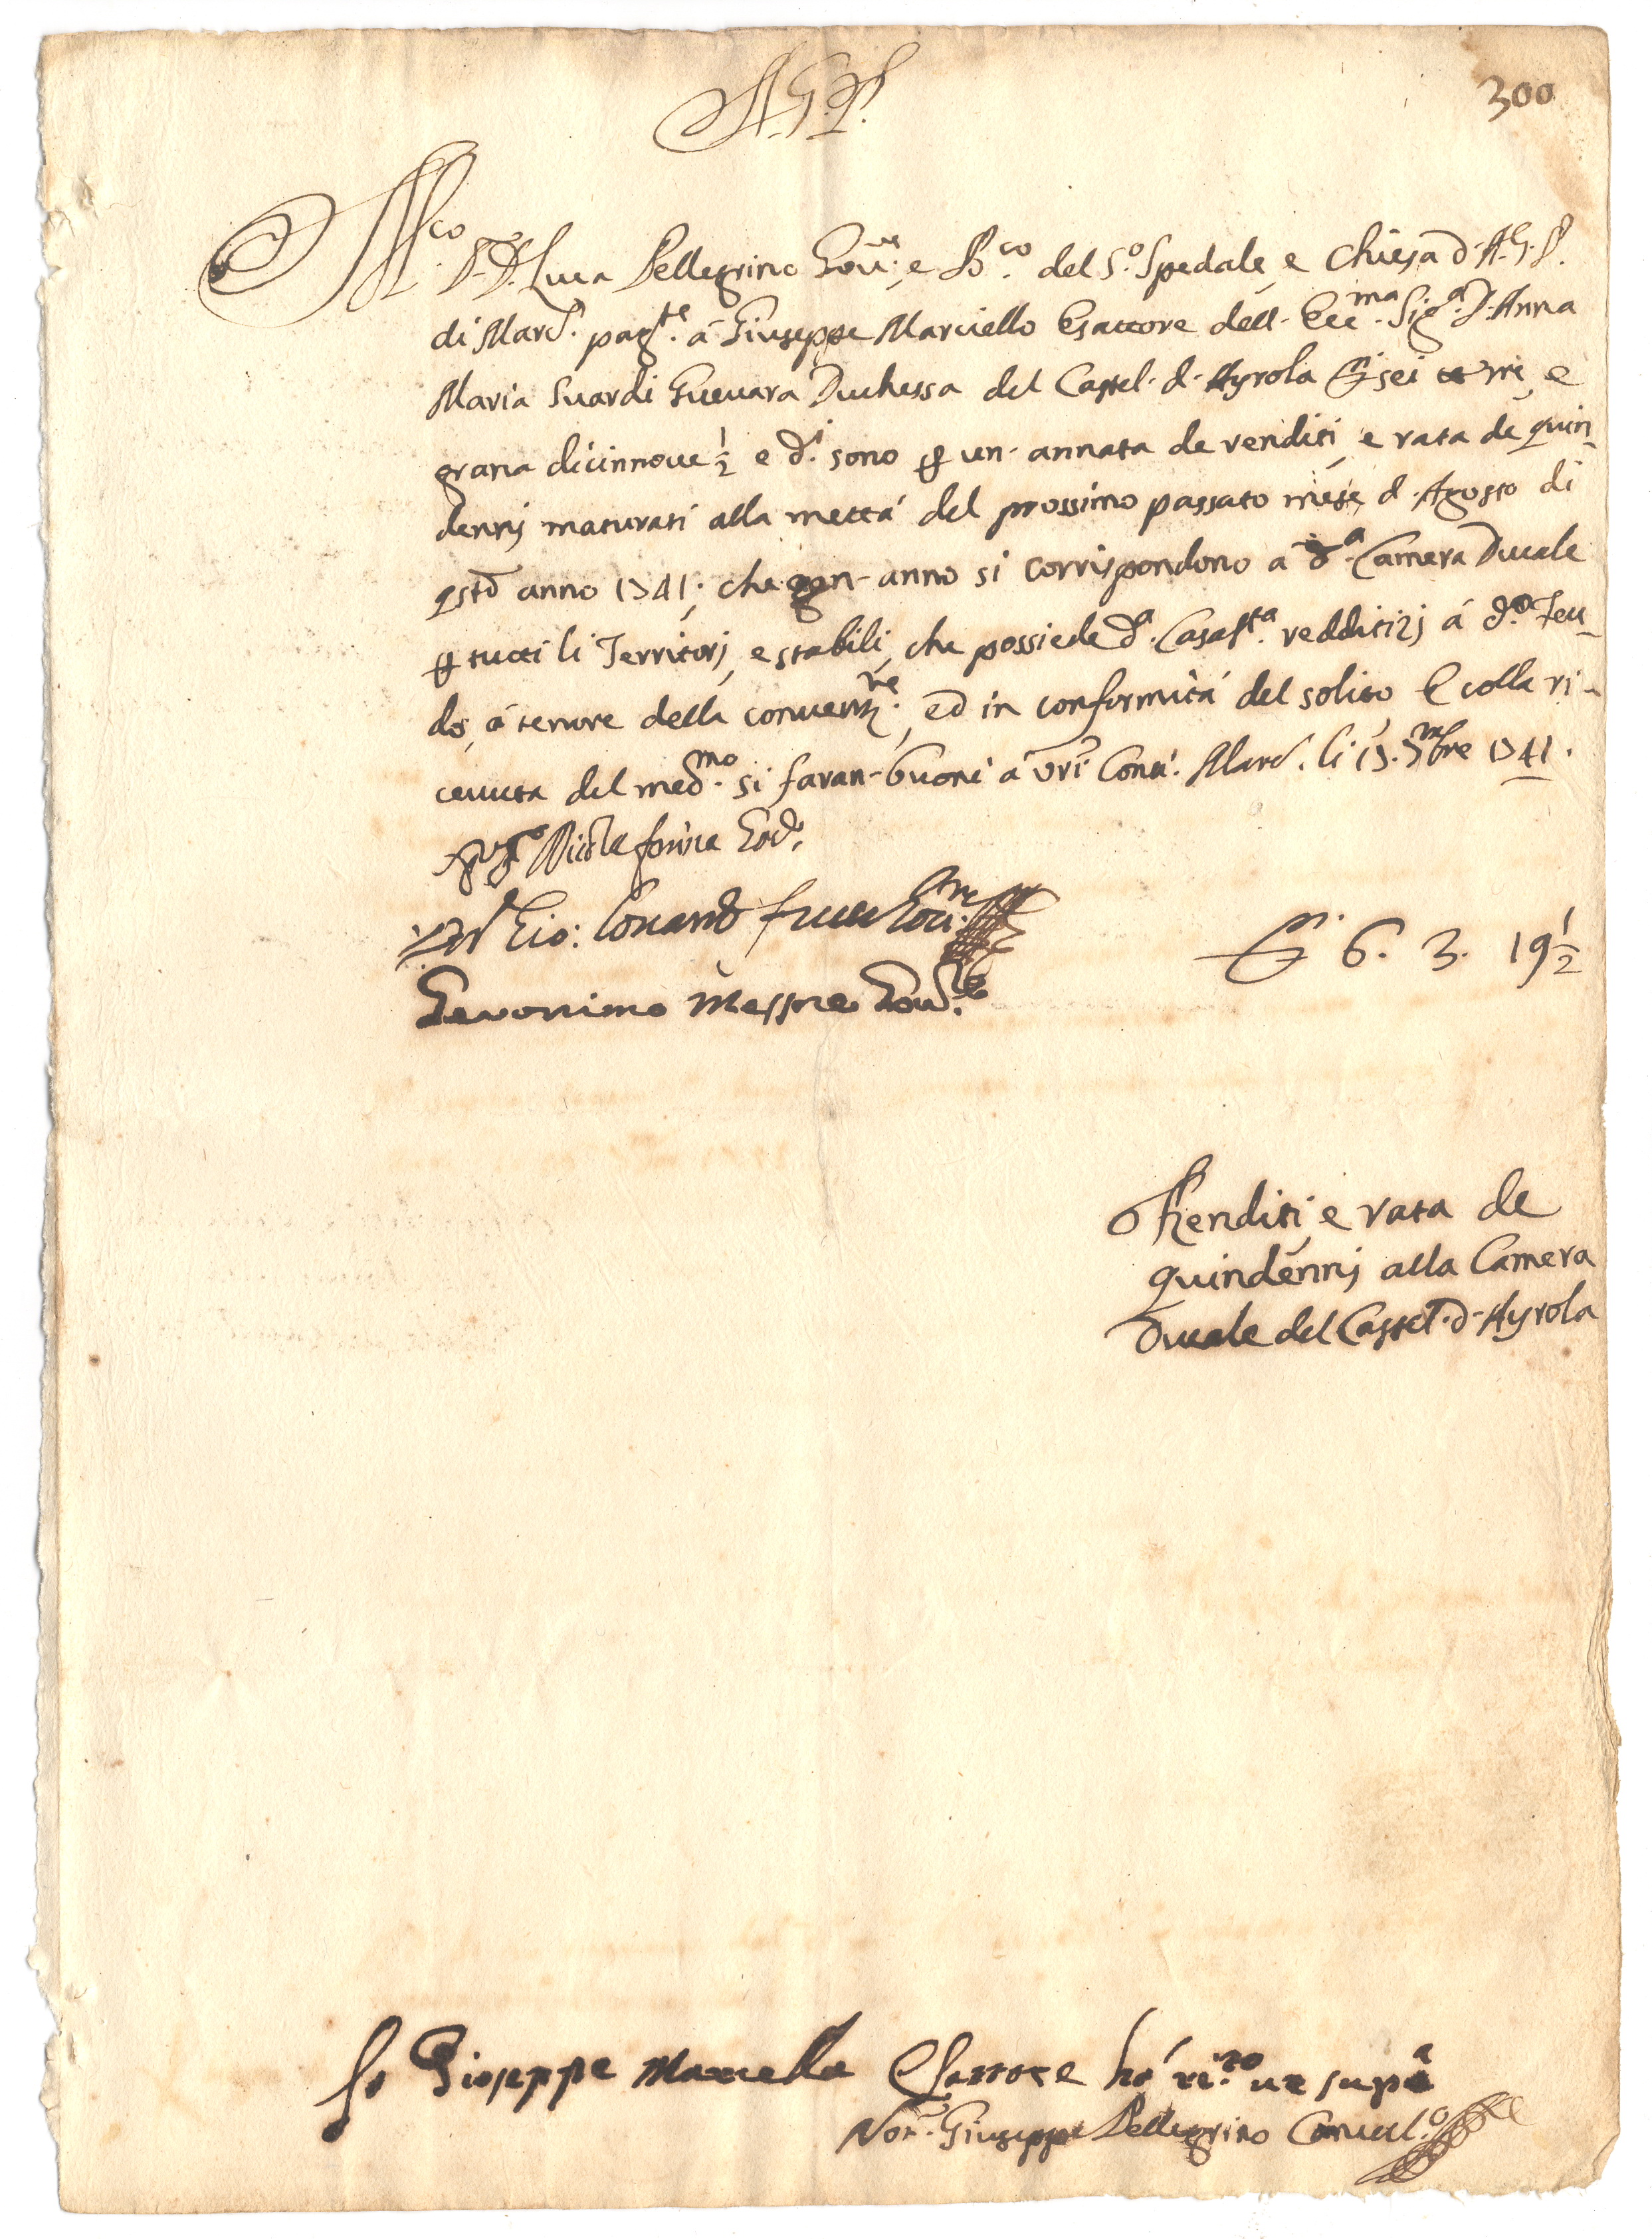 A.G.P.
300
M.co D. D. Luca Pellegrino Gov.re, e B.co del S.o Spedale, e Chiesa d. A.G.P.
di Mard. pag.te á Giuseppe Marciello Esattore dell. Ecc.ma Sig.a D. Anna
Maria Suardi Guevara Duchessa del Castel. d. Ayrola sei e
grana dicinnove ½ e d.i sono un. annata de renditi, e rata de quin-
dennj maturati alla mettá del prossimo passato mese d. Agosto di
qsto anno 1741; che ogn. anno si corrispondono á d.a Camera Ducale
tutti li Territorj, e stabili, che possiede d.a Casa s.ta redditizj á d.o Feu-
do, á tenore della convenz.ne, ed in conformitá del solito E colla ri-
cevuta del med.mo si faran. buoni á vri Conti. Mard. li 17. 7mbre 1741.
Gov.
Gio: Gov.re
Geronimo Mastre Gov.re
6. 3. 19½
Renditi, e rata de
quindennj alla Camera
Ducale del Castel. d. Ayrola
Io Gioseppe Marciello Esattore hó ri.to ut supa
Not. Giuseppe Pellegrino Cancell.o